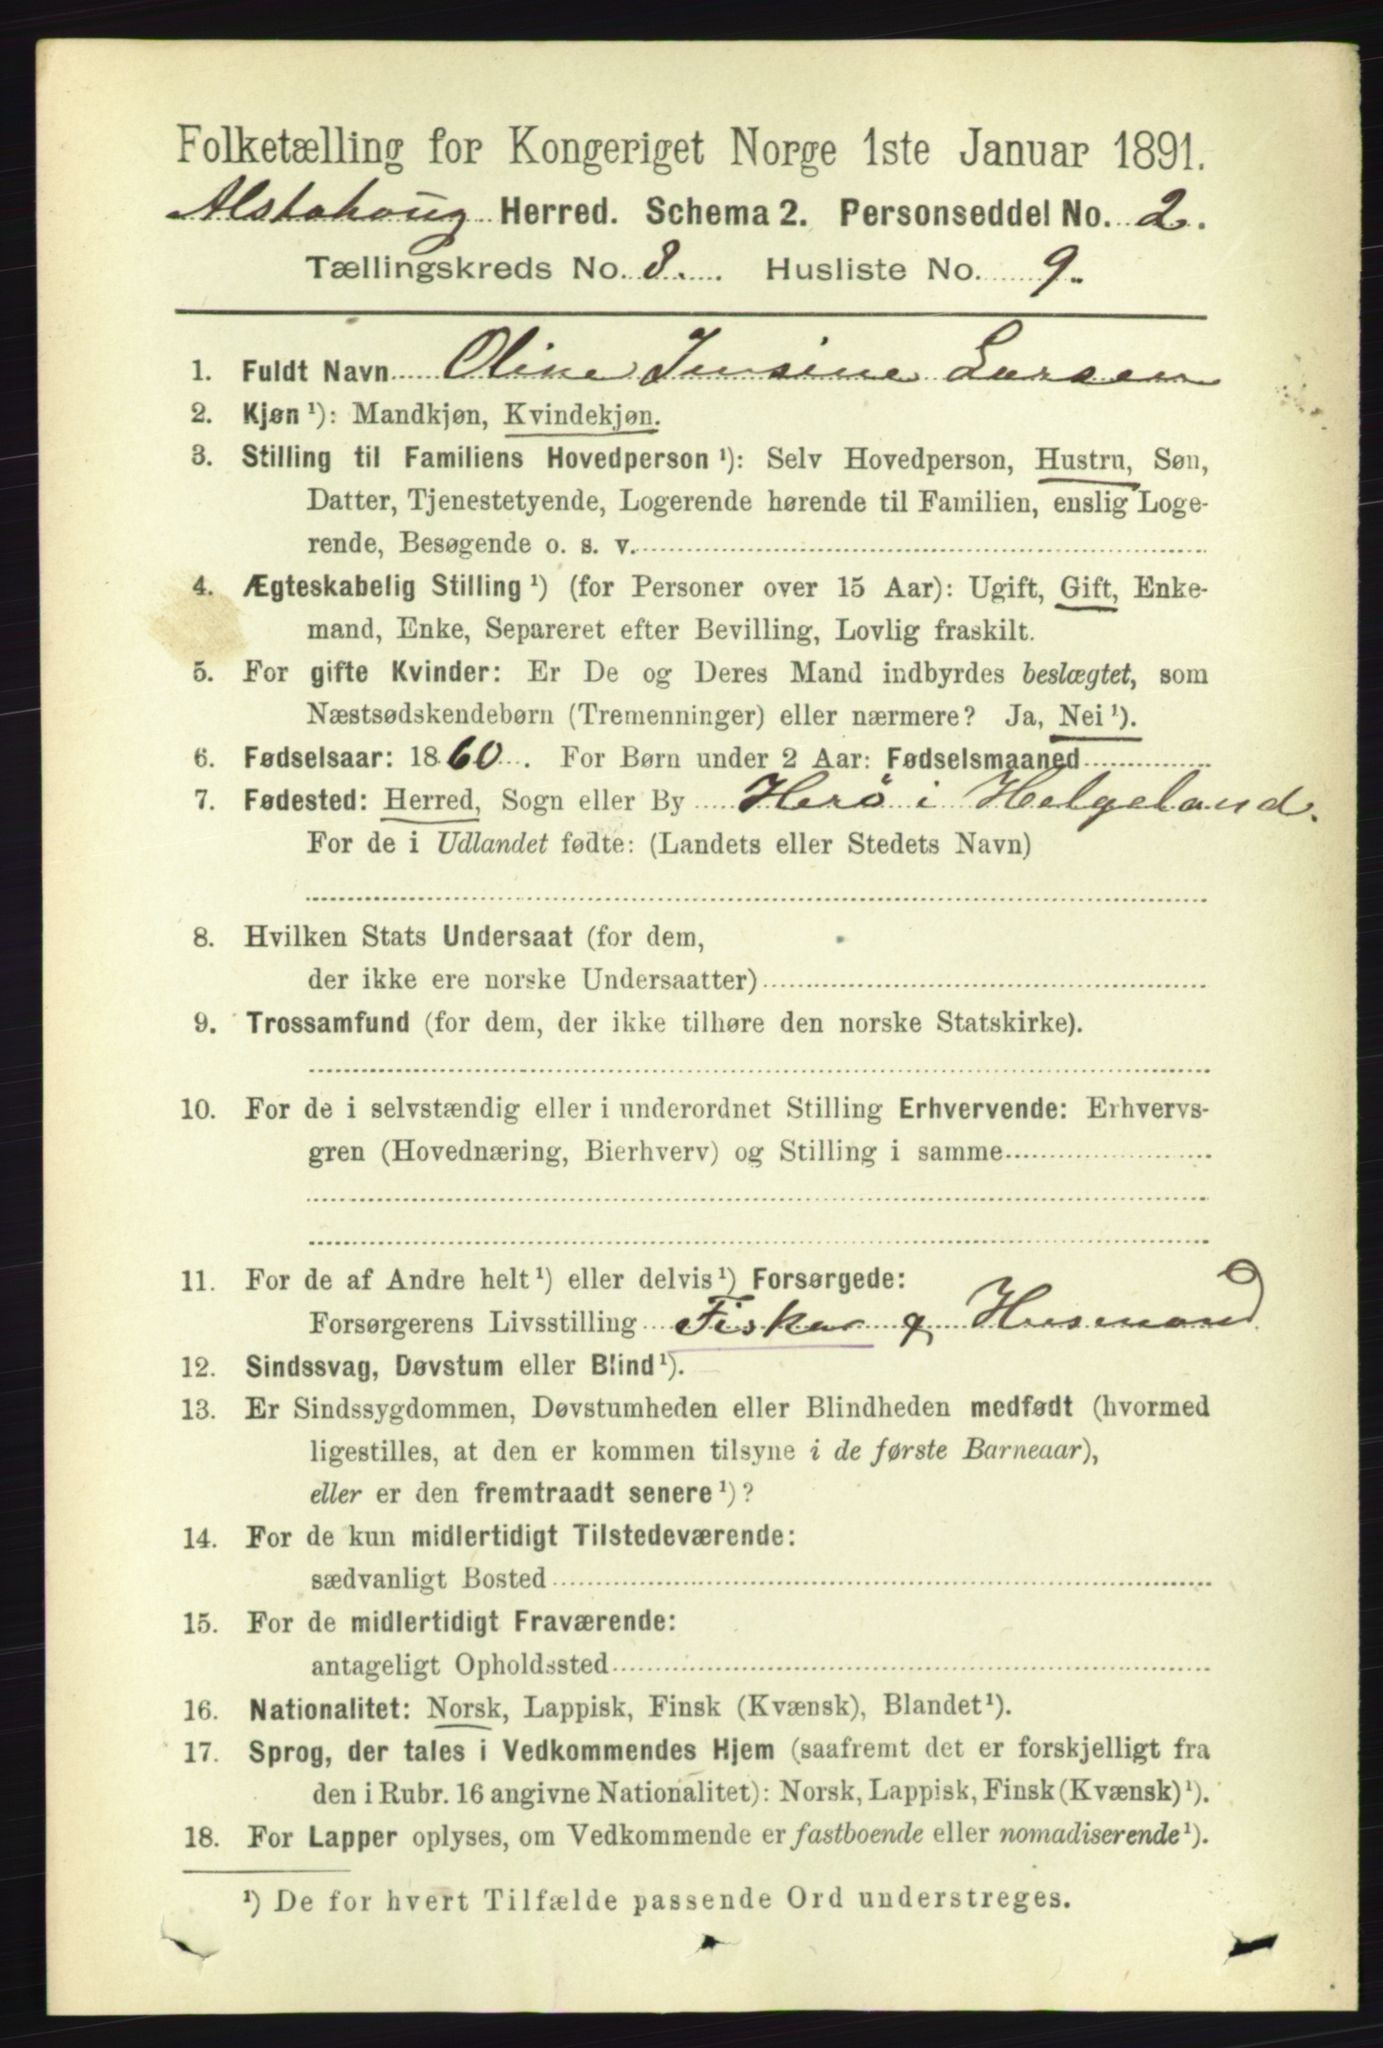 Folketælling for Kongeriget Norge 1ste Januar 1891.
Alstahoug Herred. Schema 2. Personseddel No. 2.
Tællingskreds No. 8. Husliste No. 9.
1. Fuldt Navn Oline Jensine Larsen
2. Kjøn¹): Mandkjøn, Kvindekjøn.
3. Stilling til Familiens Hovedperson¹): Selv Hovedperson, Hustru, Søn,
Datter, Tjenestetyende, Logerende hørende til Familien, enslig Loge-
rende, Besøgende o. s. v.
4. Ægteskabelig Stilling¹) (for Personer over 15 Aar): Ugift, Gift, Enke-
mand, Enke, Separeret efter Bevilling, Lovlig fraskilt.
5. For gifte Kvinder: Er De og Deres Mand indbyrdes beslægtet, som
Næstsødskendebørn (Tremenninger) eller nærmere? Ja, Nei¹).
6. Fødselsaar: 1860. For Børn under 2 Aar: Fødselsmaaned
7. Fødested: Herred, Sogn eller By Herö i Helgeland.
For de i Udlandet fødte: (Landets eller Stedets Navn)
8. Hvilken Stats Undersaat (for dem,
der ikke ere norske Undersaatter)
9. Trossamfund (for dem, der ikke tilhøre den norske Statskirke).
10. For de i selvstændig eller i underordnet Stilling Erhvervende: Erhvervs-
gren (Hovednæring, Bierhverv) og Stilling i samme
11. For de af Andre helt¹) eller delvis¹) Forsørgede:
Forsørgerens Livsstilling Fisker og Husmand
12. Sindssvag, Døvstum eller Blind¹).
13. Er Sindssygdommen, Døvstumheden eller Blindheden medfødt (hvormed
ligestilles, at den er kommen tilsyne i de første Barneaar),
eller er den fremtraadt senere¹)?
14. For de kun midlertidigt Tilstedeværende:
sædvanligt Bosted
15. For de midlertidigt Fraværende:
antageligt Opholdssted
16. Nationalitet: Norsk, Lappisk, Finsk (Kvænsk), Blandet¹).
17. Sprog, der tales i Vedkommendes Hjem (saafremt det er forskjelligt fra
den i Rubr. 16 angivne Nationalitet): Norsk, Lappisk, Finsk (Kvænsk)¹).
18. For Lapper oplyses, om Vedkommende er fastboende eller nomadiserende¹).
¹) De for hvert Tilfælde passende Ord understreges.